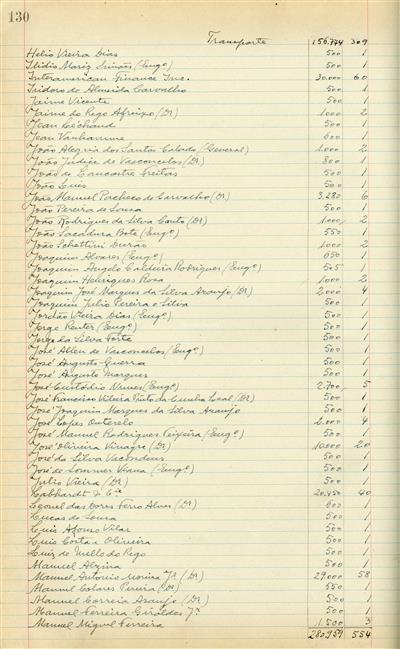 130
Transporte 156.774 309
Helio Vieira Dias 500 1
Ilidio Mariz Simões (Engº) 500 1
Interamerican Finance Inc. 30.000 60
Isidoro de Almeida Carvalho 500 1
Jaime Vicente 500 1
Jaime do Rego Afreixo (Dr) 1000 2
Jean 500 1
Jean 600 1
João Alegria dos Santos Calado (General) 1.000 2
João Judice de Vasconcelos (Dr) 800 1
João de Lancastre Freitas 500 1
João Luis 500 1
João Manuel Pacheco de Carvalho (Dr) 3.280 6
João Pereira de Sousa 500 1
João Rodrigues da Silva Couto (Dr) 1000 2
João Sacadura Bote (Engº) 550 1
João Schettini Durão 1000 2
Joaquim Alvares (Engº) 650 1
Joaquim Angelo Caldeira Rodrigues (Engº) 505 1
Joaquim Henriques Rosa 1000 2
Joaquim José Marques da Silva Araujo (Dr) 2.000 4
Joaquim Julio Pereira e Silva 500 1
Jordão Vieira Dias (Engº) 500 1
Jorge Renter (Engº) 500 1
Jorge da Silva Forte 500 1
José Allen de Vasconcelos (Engº) 500 1
José Augusto Guerra 500 1
José Augusto Marques 500 1
José Custódio Nunes (Engº) 2.700 5
José Francisco Vileira Pinto da Cunha Leal (Dr) 500 1
José Joaquim Marques da Silva Araujo 500 1
José Lopes Outerelo 2.000 4
José Manuel Rodrigues Teixeira (Engº) 500 1
José Oliveira Vinagre (Dr) 10.000 20
José da Silva 500 1
José de Sommer Viana (Engº) 500 1
Julio Vieira (Dr) 500 1
Labhardt & Cia 20.450 40
Leonel das Dores Ferro Alves (Dr) 600 1
Lucas de Sousa 500 1
Luis Afonso Vilar 500 1
Luis Costa e Oliveira 500 1
Luiz de Mello do Rego 500 1
Manuel Alzina 500 1
Manuel Antonio Moniz Jr (Dr) 29.000 58
Manuel Colares Pereira (Dr) 550 1
Manuel Correia Araujo (Dr) 500 1
Manuel Ferreira Giraldes Jr 500 1
Manuel Miguel Ferreira 1.500 3
280.959 554